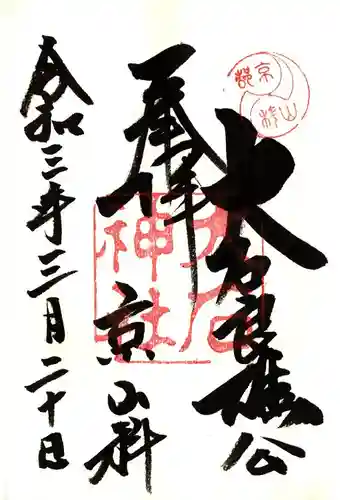 京都山科
大石良雄公
奉拝
京山科
大石神社
令和三年三月二十日